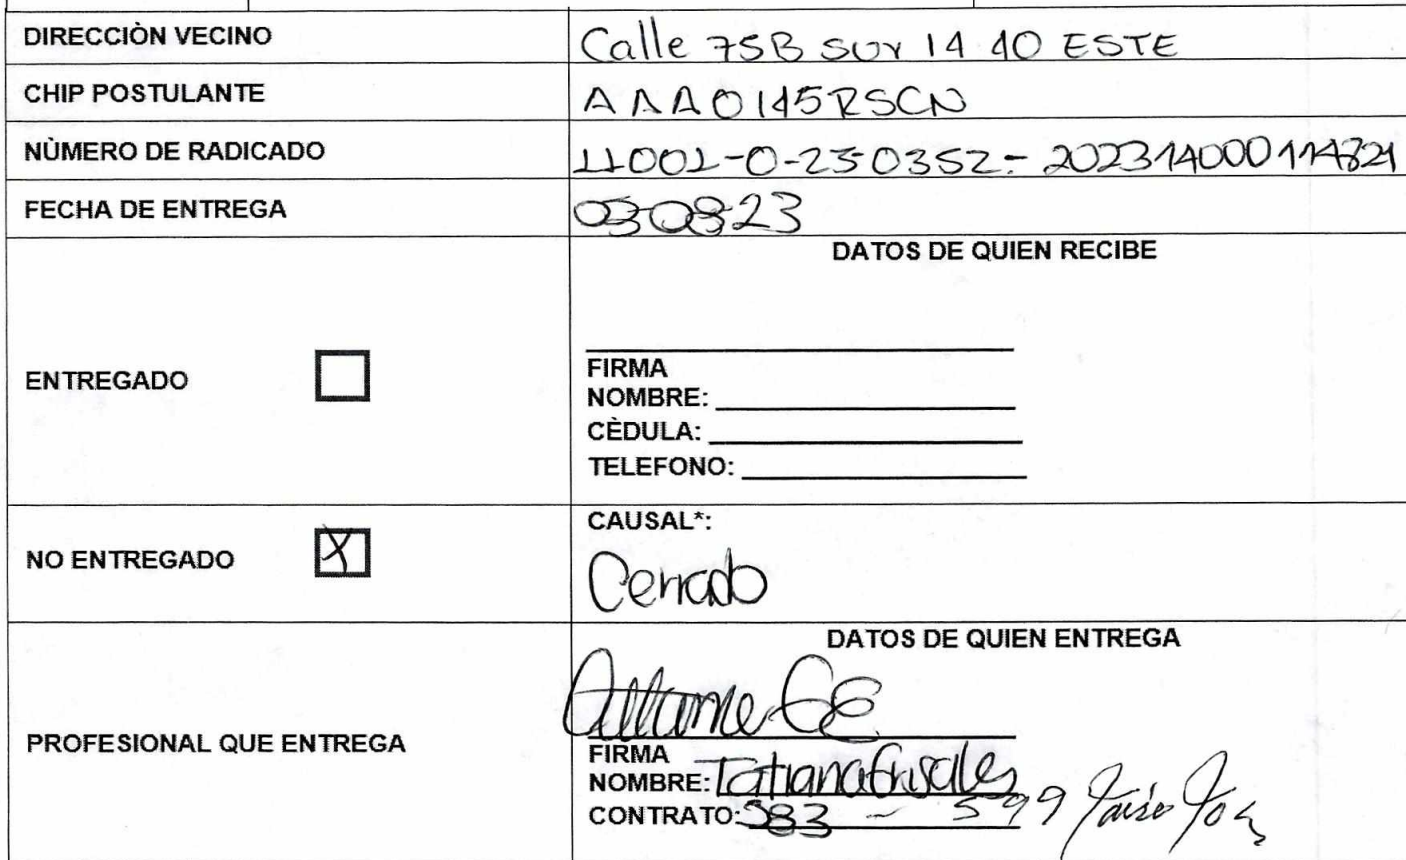 DIRECCIÒN VECINO Calle 75B sur 14 40 ESTE
CHIP POSTULANTE AAA0145RSCN
NÙMERO DE RADICADO 11001-0-23-0352 - 202314000114821
FECHA DE ENTREGA 030823
DATOS DE QUIEN RECIBE
ENTREGADO
FIRMA
NOMBRE:
CÈDULA:
TELEFONO:
NO ENTREGADO X
CAUSAL*:
Cerrado
DATOS DE QUIEN ENTREGA
PROFESIONAL QUE ENTREGA
FIRMA
NOMBRE: Tatiana Grisales
CONTRATO: 583 - 599